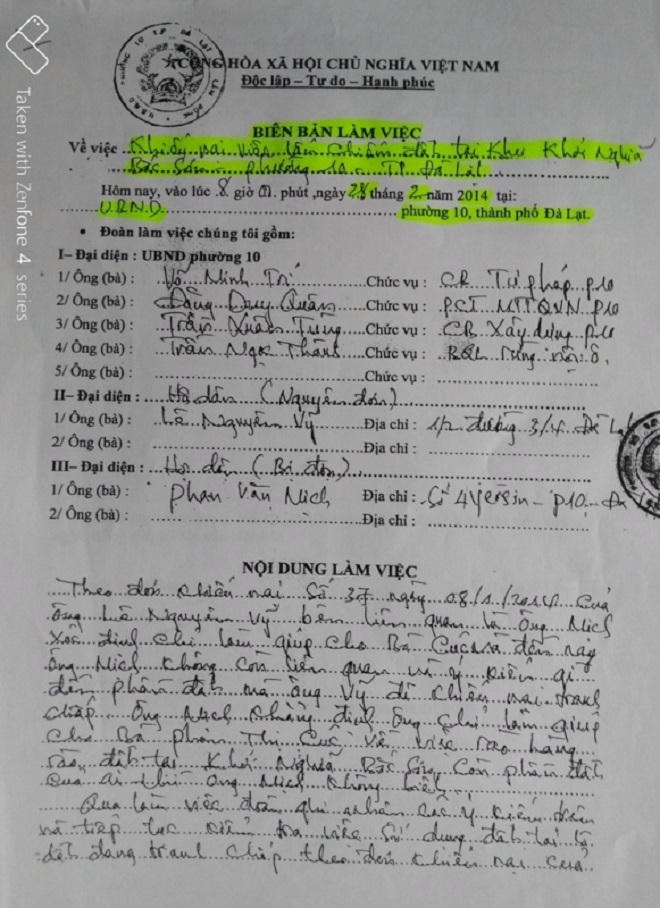 CỘNG HÒA XÃ HỘI CHỦ NGHĨA VIỆT NAM
Độc lập – Tự do – Hạnh phúc
BIÊN BẢN LÀM VIỆC
Về việc Khiếu nại việc lấn chiếm đất tại Khu Khởi Nghĩa
Bắc Sơn phường 10 - TP Đà Lạt
Hôm nay, vào lúc 8 giờ phút, ngày 28 tháng 2 năm 2014 tại:
U.B.N.D phường 10, thành phố Đà Lạt.
• Đoàn làm việc chúng tôi gồm:
I– Đại diện : UBND phường 10
1/ Ông (bà) : Võ Minh Trí Chức vụ : CB Tư pháp P10
2/ Ông (bà) : Đặng Duy Quân Chức vụ : PCT MTTQVN P10
3/ Ông (bà) : Trần Xuân Tùng Chức vụ : CB Xây dựng P10
4/ Ông (bà) : Trần Ngọc Thành Chức vụ : BQL rừng
5/ Ông (bà) : Chức vụ :
II– Đại diện : Hộ dân (Nguyên đơn)
1/ Ông (bà) : Lê Nguyên Vỹ Địa chỉ : 1/2 đường 3/4 Đà Lạt
2/ Ông (bà) : Địa chỉ :
III– Đại diện : Hộ dân (Bị đơn)
1/ Ông (bà) : Phan Văn Mích Địa chỉ : Số 4 Yersin – P10
2/ Ông (bà) : Địa chỉ :
NỘI DUNG LÀM VIỆC
Theo đơn khiếu nại Số 37 ngày 08/1/2014 Của
ông Lê Nguyên Vỹ bên liên quan là Ông Mích
Xác định chỉ làm giúp cho Bà Cúc đến nay
Ông Mích không còn liên quan và ý kiến gì
đến phần đất mà ông Vỹ đã khiếu nại tranh
chấp. Ông Mích khẳng định ông chỉ làm giúp
cho Bà Phan Thị Cúc về việc rào hàng
rào đất tại Khởi Nghĩa Bắc Sơn, Còn phần đất
của ai thì ông Mích không biết.
Qua làm việc đoàn ghi nhận các ý kiến trên
và tiếp tục kiểm tra việc sử dụng đất tại lô
đất đang tranh chấp theo đơn khiếu nại của
Taken with Zenfone 4 series